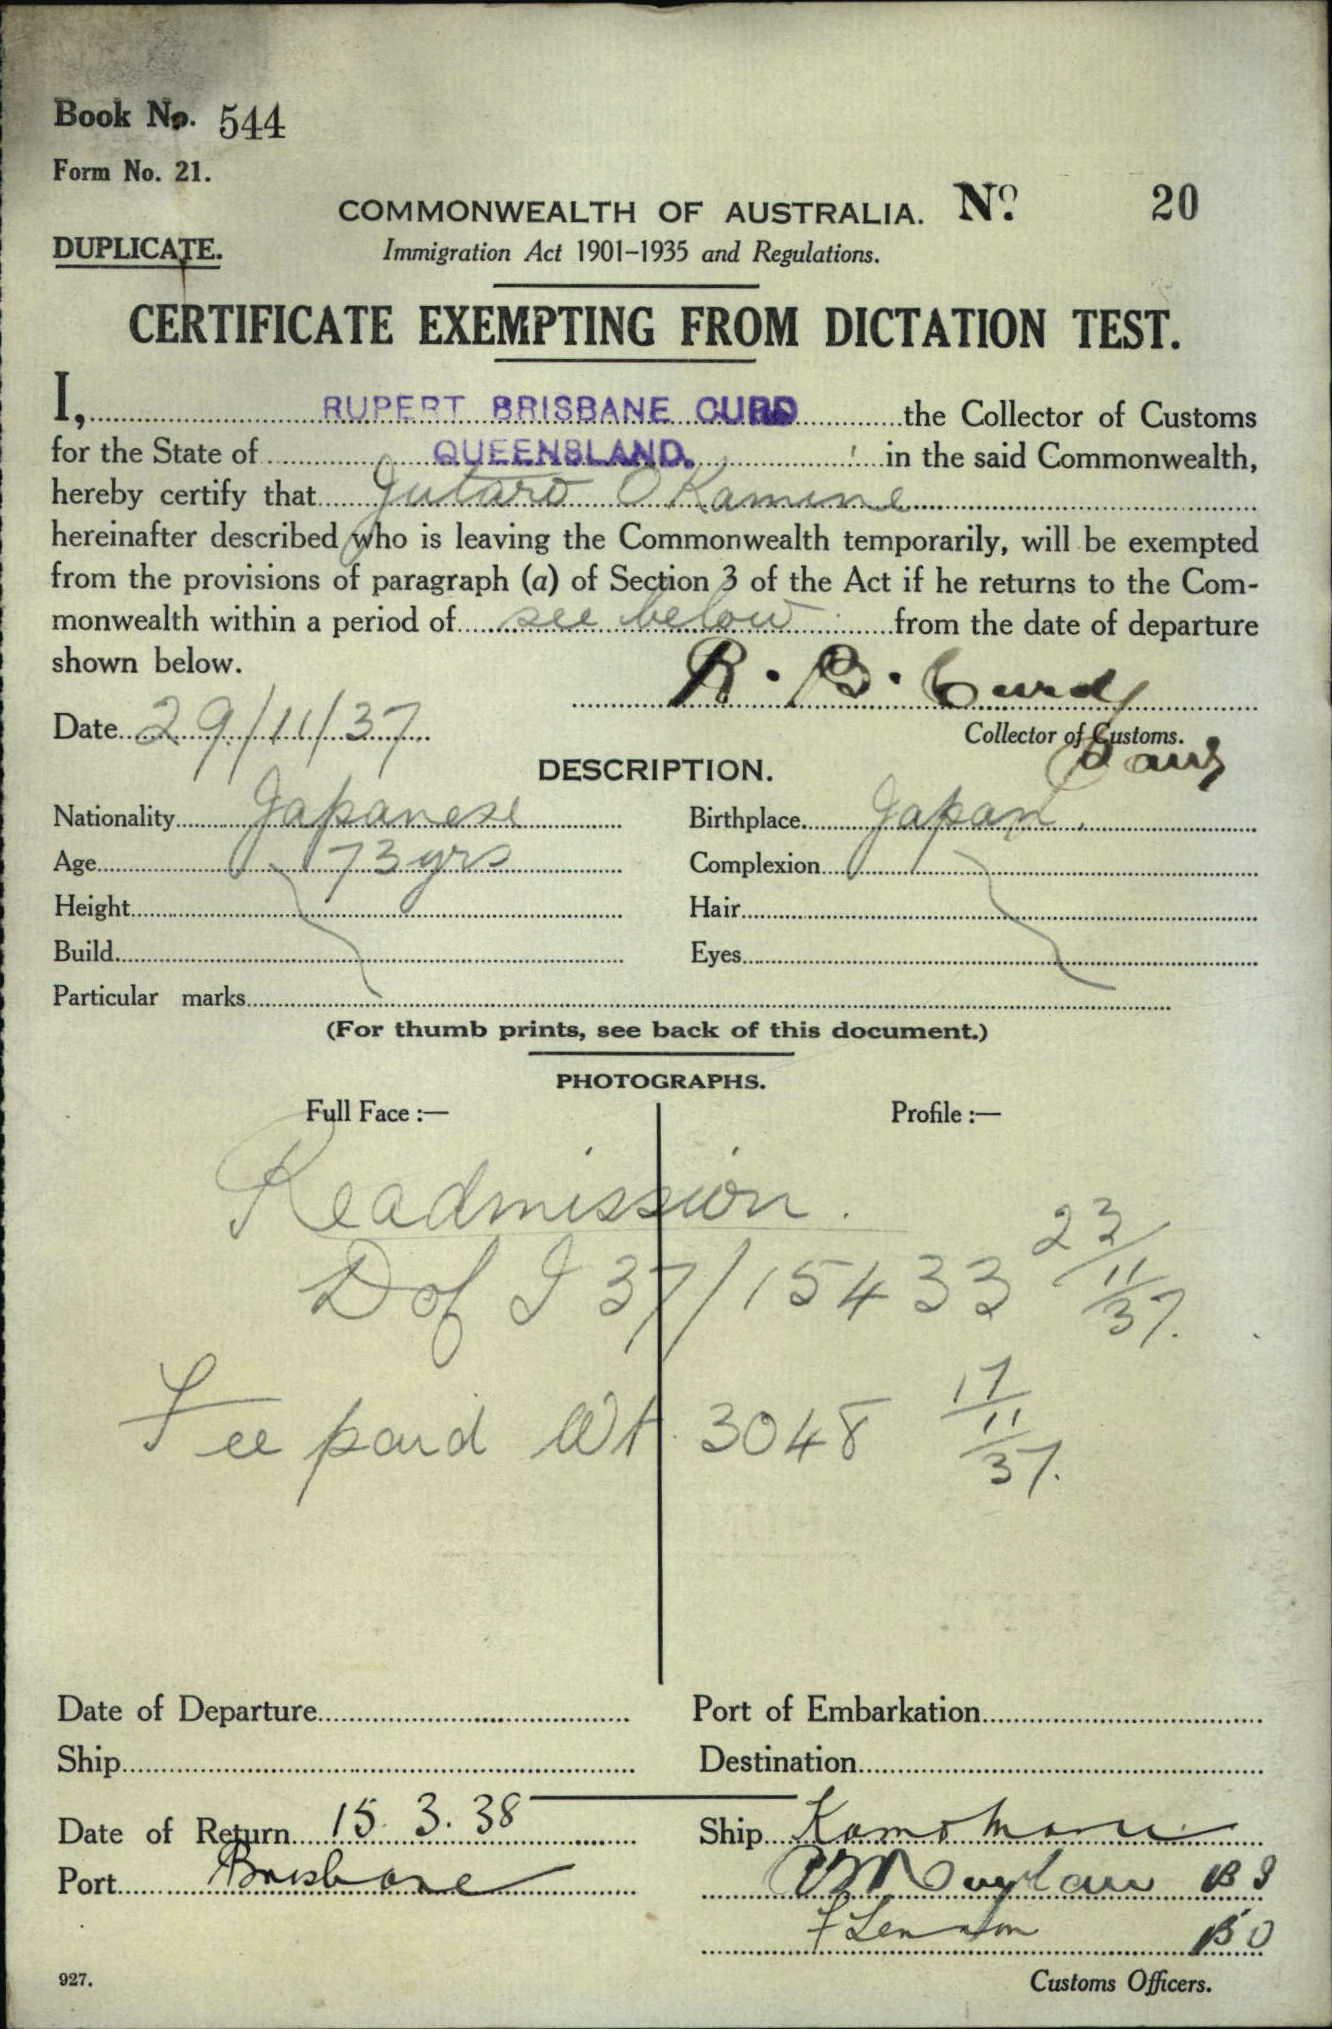 Book No. 544
Form No. 21.
COMMONWEALTH OF AUSTRALIA. No. 20
DUPLICATE.
Immigration Act 1901-1935 and Regulations.
CERTIFICATE EXEMPTING FROM DICTATION TEST.
I, RUPERT BRISBANE CURD the Collector of Customs
for the State of QUEENSLAND. in the said Commonwealth,
hereby certify that Jutaro OKamine
hereinafter described who is leaving the Commonwealth temporarily, will be exempted
from the provisions of paragraph (a) of Section 3 of the Act if he returns to the Com-
monwealth within a period of see below from the date of departure
shown below.
R. B. Curd
Date 29/11/37
Collector of Customs.
DESCRIPTION.
Nationality Japanese Birthplace Japan.
Age 73 yrs Complexion
Height Hair
Build Eyes
Particular marks
(For thumb prints, see back of this document.)
PHOTOGRAPHS.
Full Face :— Profile :—
Readmission.
D of I 37/15433 23/11/37.
Fee paid 3048 17/11/37.
Date of Departure Port of Embarkation
Ship Destination
Date of Return 15.3.38 Ship Kamo Maru
Port Brisbane
927. Customs Officers.